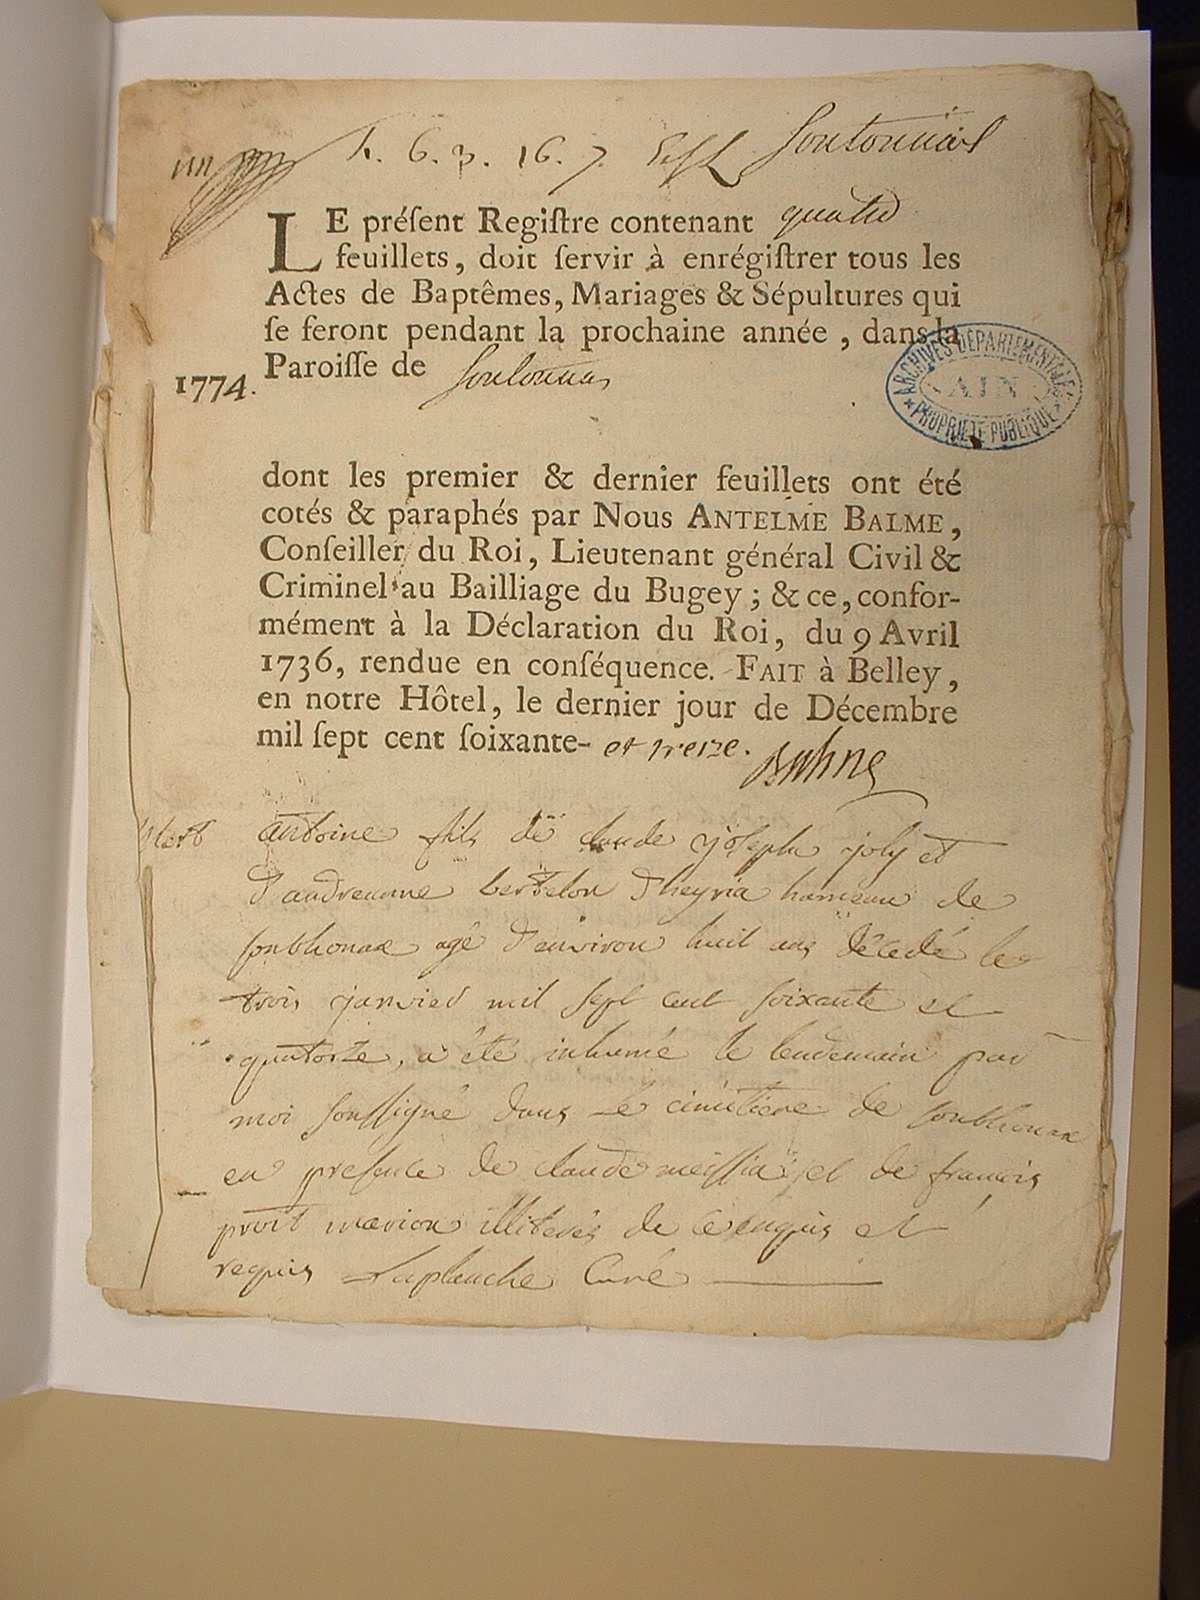 Sontonnax
LE préſent Regiſtre contenant quatre
feuillets, doit ſervir à enrégiſtrer tous les
Actes de Baptêmes, Mariages & Sépultures qui
ſe feront pendant la prochaine année, dans la
1774. Paroiſſe de Sontonnax
ARCHIVES DÉPARTEMENTALES
AIN
PROPRIÉTÉ PUBLIQUE
dont les premier & dernier feuillets ont été
cotés & paraphés par Nous ANTELME BALME,
Conſeiller du Roi, Lieutenant général Civil &
Criminel au Bailliage du Bugey; & ce, confor-
mément à la Déclaration du Roi, du 9 Avril
1736, rendue en conſéquence. FAIT à Belley,
en notre Hôtel, le dernier jour de Décembre
mil ſept cent ſoixante- et treize. Balme
antoine fils de claude joseph joly et
d'andreanne bertelon d'heyria hameau de
sonthonax agé d'environ huit ans décedé le
trois janvier mil sept cent soixante et
quatorze, a été inhumé le lendemain par
moi soussigné dans le cimitiere de sonthonax
en presence de claude meissiat et de francois
marion illiterés de ce enquis et
requis Laplanche Curé